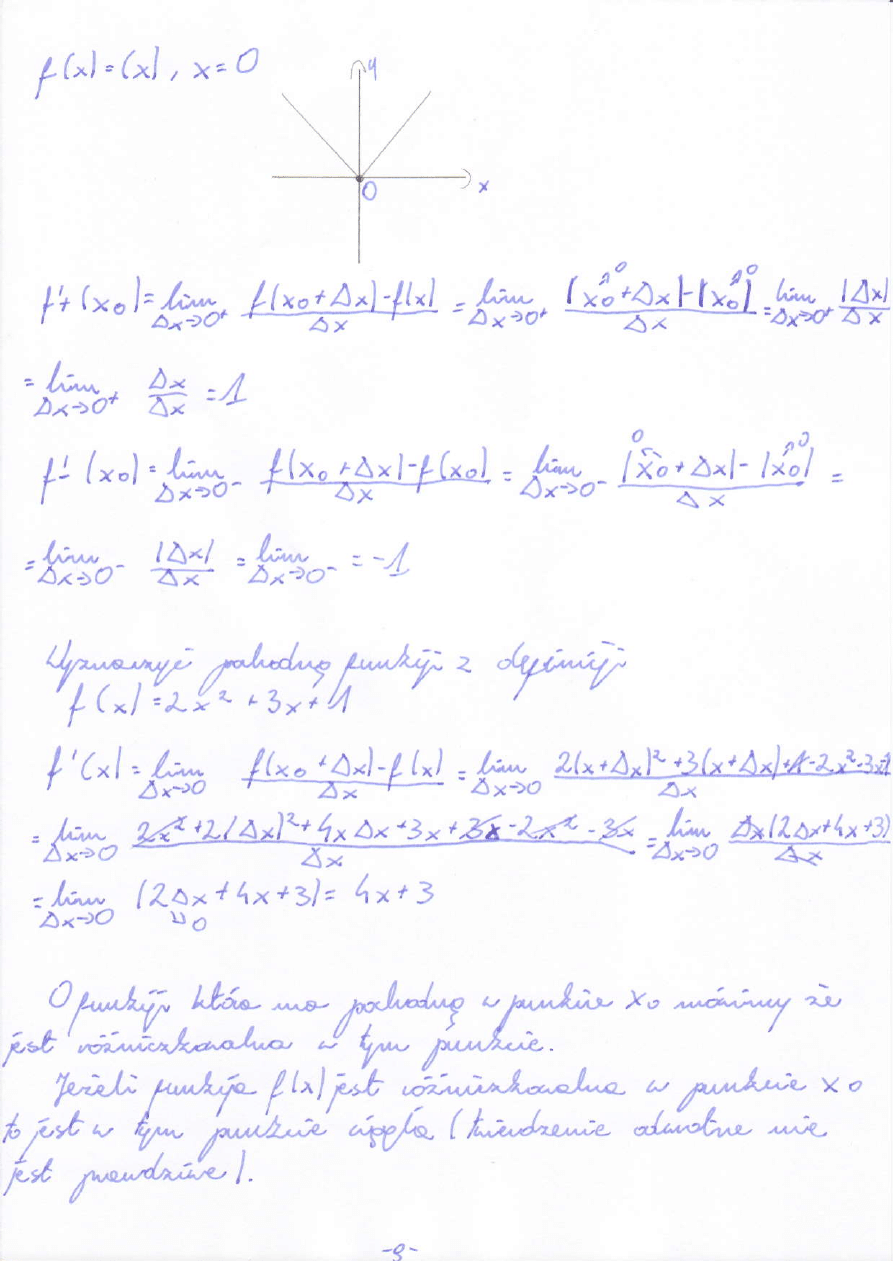 f(x)=|x|, x=0
y
0
x
f'+(x₀)=lim Δx→0⁺ f(x₀+Δx)-f(x)/Δx = lim Δx→0⁺ |x₀+Δx|-|x₀|/Δx = lim Δx→0⁺ |Δx|/Δx
= lim Δx→0⁺ Δx/Δx = 1
f'-(x₀)= lim Δx→0⁻ f(x₀+Δx)-f(x₀)/Δx = lim Δx→0⁻ |x₀+Δx|-|x₀|/Δx =
= lim Δx→0⁻ |Δx|/Δx = lim Δx→0⁻ = -1
Wyznaczyć pochodną funkcji z definicji
f(x)=2x²+3x+1
f'(x)= lim Δx→0 f(x₀+Δx)-f(x)/Δx = lim Δx→0 2(x+Δx)²+3(x+Δx)+1-2x²-3x-1/Δx
= lim Δx→0 2x²+2(Δx)²+4xΔx+3x+3x-2x²-3x/Δx = lim Δx→0 Δx(2Δx+4x+3)/Δx
= lim Δx→0 (2Δx+4x+3)= 4x+3
0
O funkcji która ma pochodną w punkcie x₀ mówimy że
jest różniczkowalna w tym punkcie.
Jeżeli funkcja f(x) jest różniczkowalna w punkcie x₀
to jest w tym punkcie ciągła (twierdzenie odwrotne nie
jest prawdziwe).
-9-